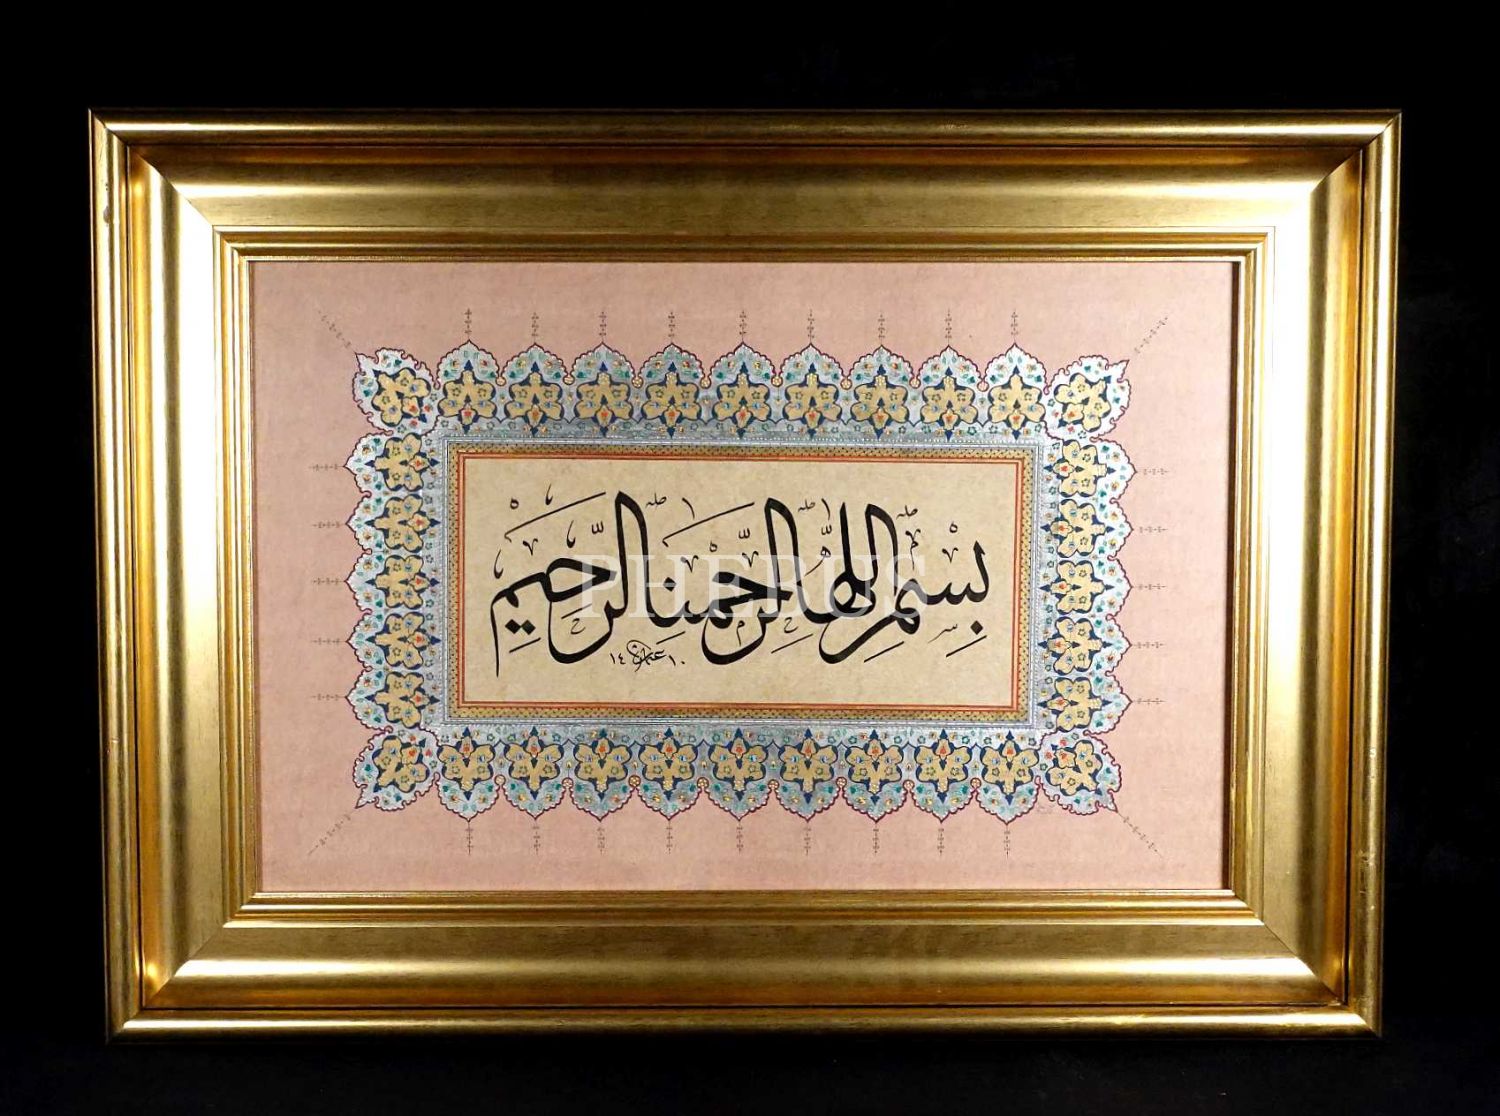 بِسْمِ اللهِ الرَّحْمٰنِ الرَّحِيمِ
١٤١٠
PHEBUS